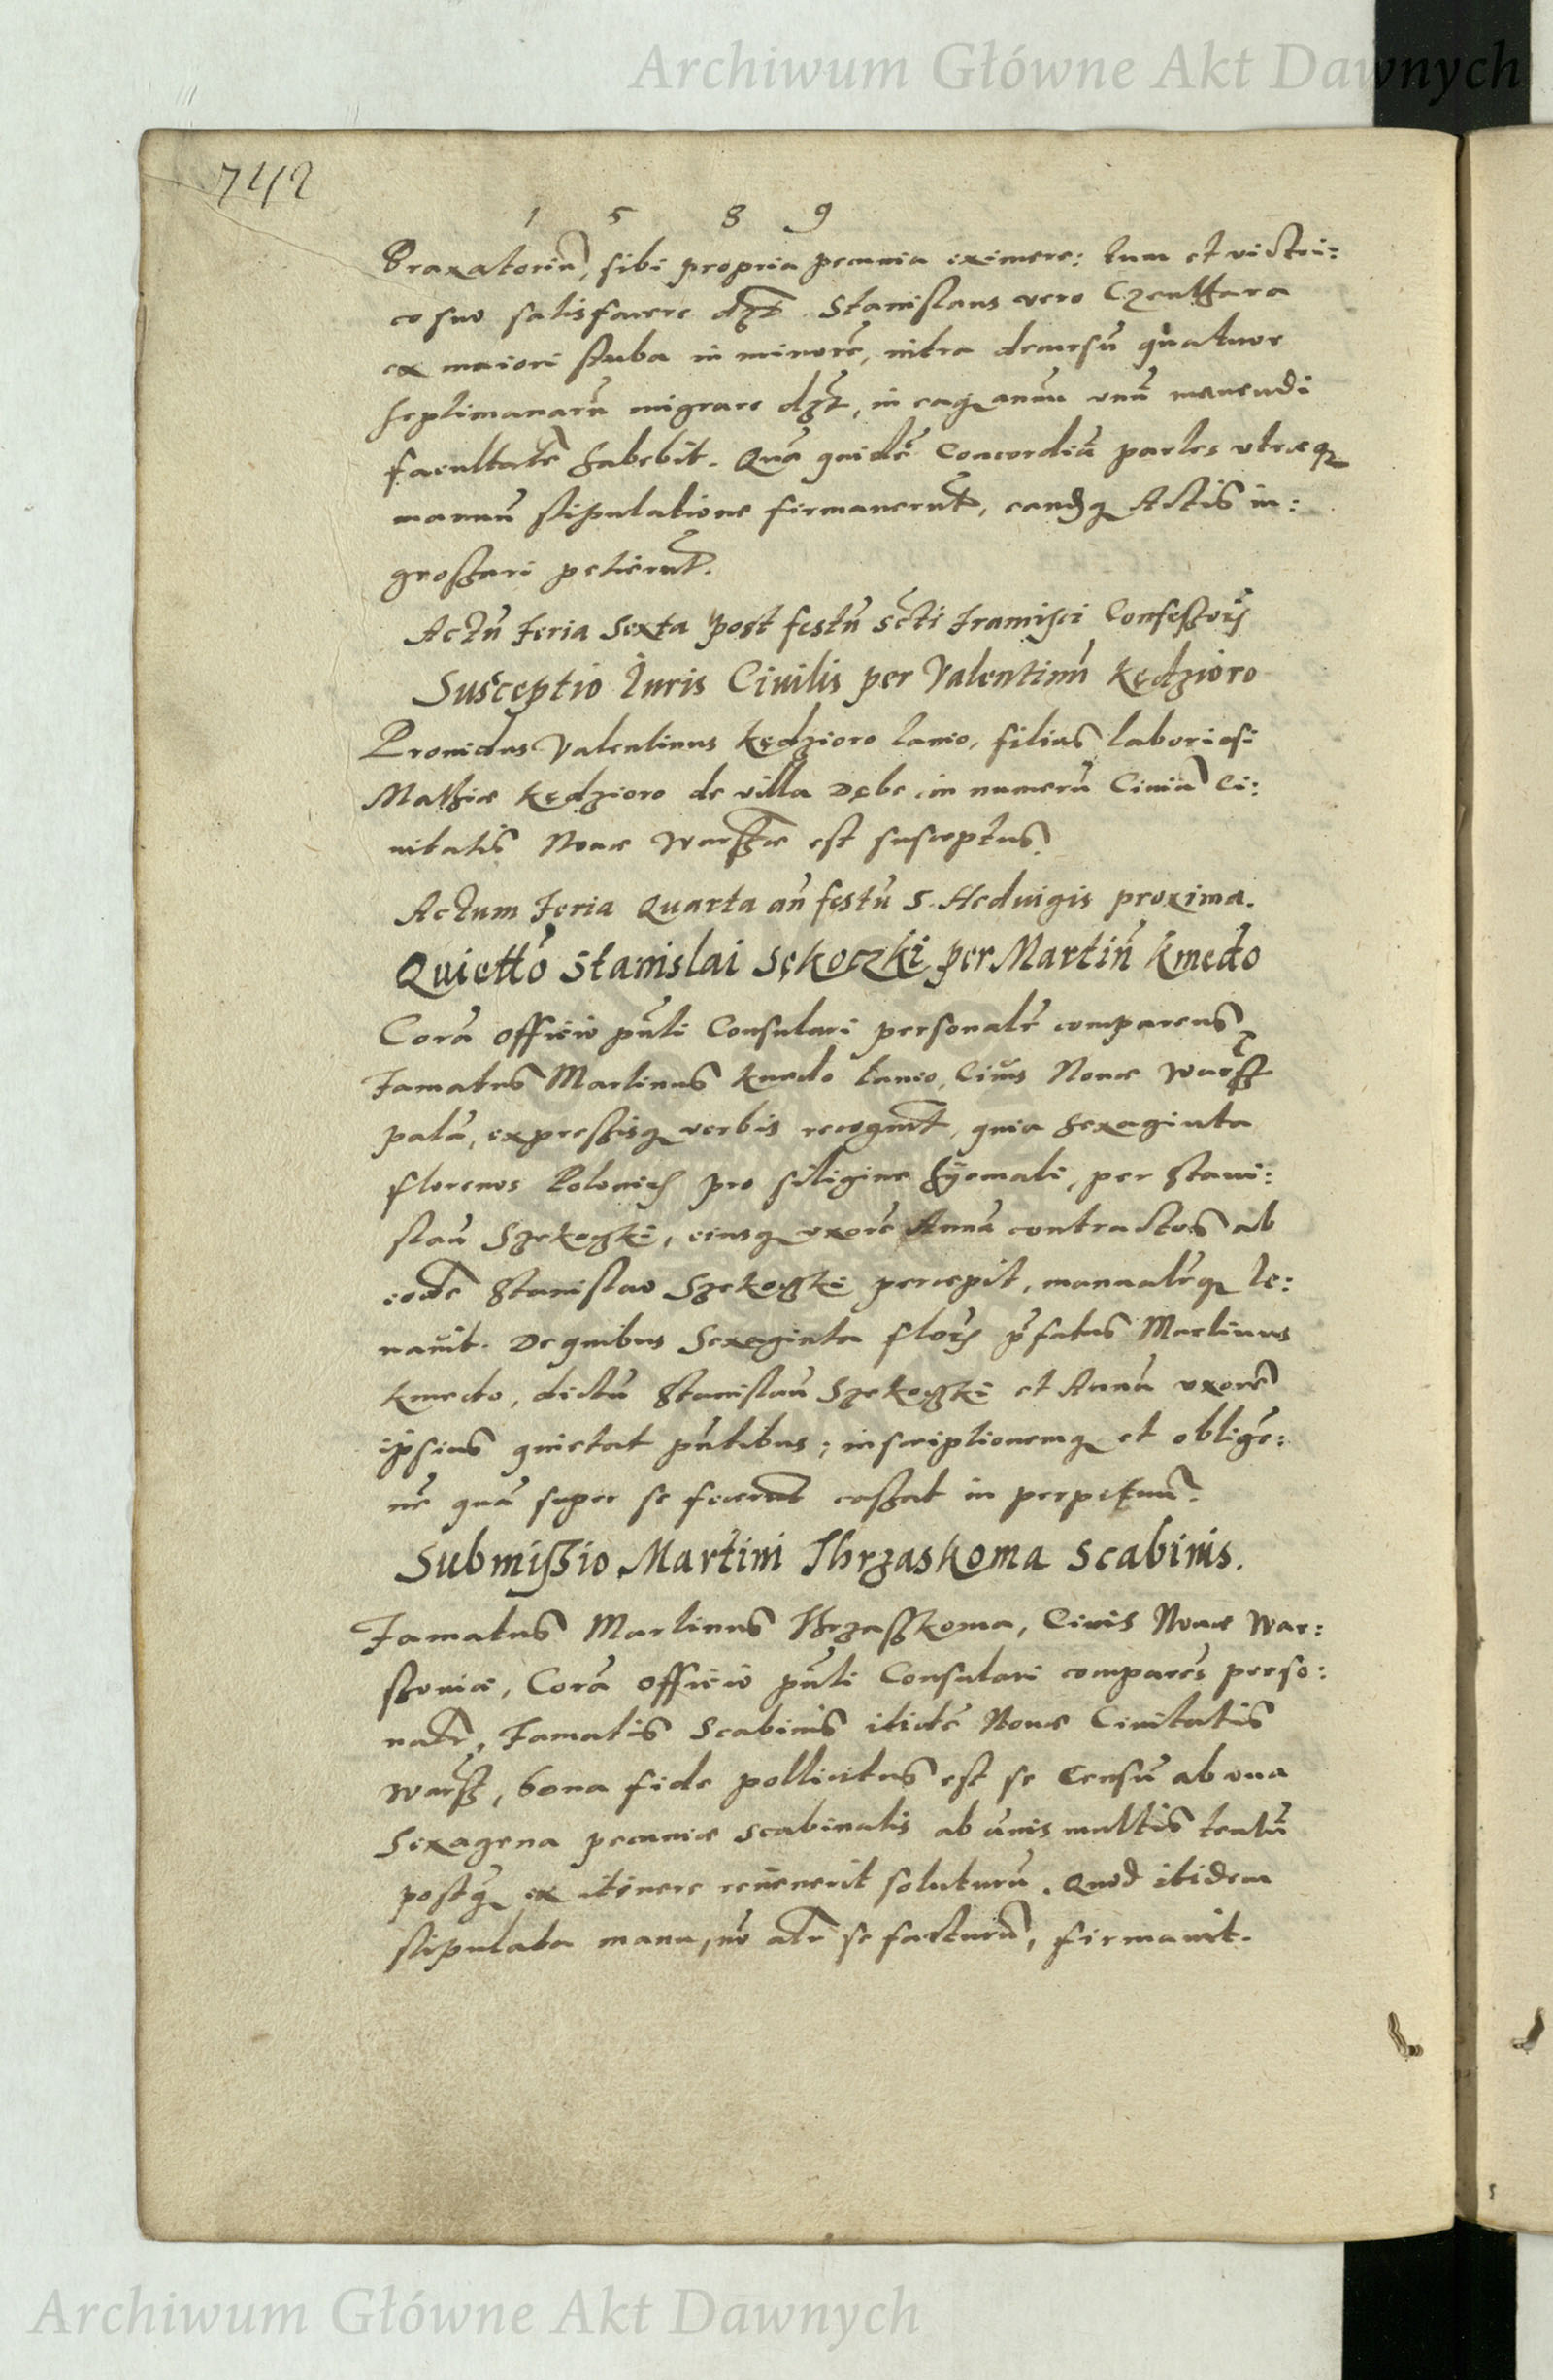 Archiwum Główne Akt Dawnych
742
1 5 8 9
Braxatoriũ, sibi propria pecunia eximere: tum et victri:
co suo satisfacere dʒt. Stanislaus vero Czenthara
ex maiori stuba in minorẽ, intra decursũ quatuor
septimanarũ migrare dʒt, in eaq annũ unũ manendi
facultatẽ habebit. Quã quidẽ Concordiã partes utræq
manuũ stipulatione firmaverũt, eandq Actis in:
grossari petierũt.
Actũ Feria Sexta post festũ Scti Francisci Confessoris
Susceptio Iuris Civilis per Valentinũ Kędzioro
Providus Valentinus Kędzioro lanio, filius laboriosi
Mathiæ Kędzioro de villa Dębe in numerũ Civiũ Ci:
vitatis Novæ Warssæ est susceptus.
Actum Feria Quarta añ festũ S. Hedvigis proxima.
Quiettõ Stanislai Sękoczki per Martinũ Kmedo
Corã officio pñti Consulari personalr comparens
Famatus Martinus Kmedo lanio, Civis Novæ Warss
palã, expressisq verbis recognit, quia sexaginta
florenos Polonich pro siligine hyemali, per Stani:
slaũ Szekoczki, eiusq uxorẽ Annã contractos ab
eodẽ Stanislao Szekoczki percepit, manualrq le:
vavit. De quibus Sexaginta floris pfatus Martinus
Kmedo, dictũ Stanislaũ Szekoczki et Annã uxorẽ
ipsius quietat pñtibus; inscriptionemq et obligõ:
nẽ quã super se fecerunt cassat in perpetuũ.
Submissio Martini Thrzaskoma Scabinis.
Famatus Martinus Thrzasskoma, Civis Novæ War:
ssoviæ, Corã officio pñti Consulari comparẽs perso:
nalr, Famatis Scabinis ibidẽ Novæ Civitatis
Warss, bona fide pollicitus est se Censũ ab una
Sexagena pecuniæ Scabinalis ab annis multis tentũ
postq ex itinere revenerit soluturũ. Quod ibidem
stipulata manu, nõ alr se facturũ, firmavit.
Archiwum Główne Akt Dawnych